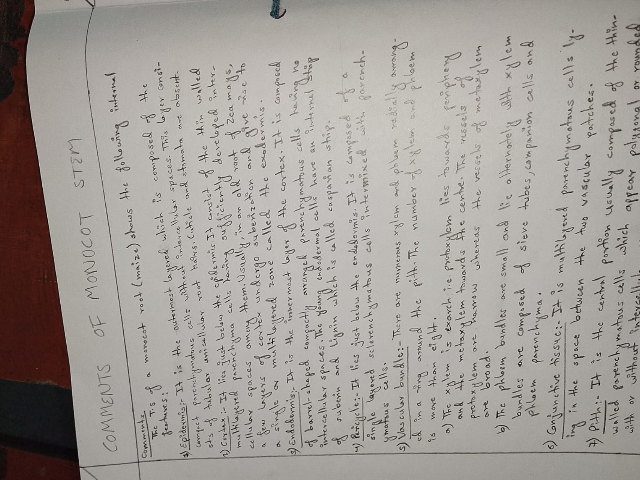 COMMENTS OF MONOCOT STEM
Comments:
The T.S of a monocot root (maize) shows the following internal
features:
1) Epidermis:- It is the outermost layered which is composed of the
compact parenchymatous cells without intercellular spaces. This layer consi-
sts of tubular unicellular root hairs. Cuticle and stomata are absent.
2) Cortex:- It lies just below the epidermis. It consist of the thin walled
multilayered parenchyma cells having sufficiently developed inter-
cellular spaces among them. Usually, in an old root of Zea mays,
few layers of cortex undergo suberization and give rise to
a single or multilayered zone called the exodermis.
3) Endodermis: It is the innermost layer of the cortex. It is composed
of barrel-shaped compactly arranged parenchymatous cells having no
intercellular spaces. The young endodermal cells have an internal strip
of suberin and lignin which is called casparian strip.
4) Pericycle:- It lies just below the endodermis. It is composed of a
single layered sclerenchymatous cells intermixed with parench-
ymatous cells.
5) Vascular bundle:- There are numerous xylem and phloem radially arrang-
ed in a ring around the pith. The number of xylem and phloem
is more than eight.
a) The xylem is exarch i.e protoxylem lies towards periphery
and metaxylem towards the centre. The vessels of
protoxylem are narrow whereas the vessels of metaxylem
are broad.
b) The phloem bundles are small and lie alternately with xylem
bundles are composed of sieve tubes, companion cells and
phloem parenchyma.
6) Conjunctive tissue:- It is multilayered parenchymatous cells ly-
ing in the space between the two vascular patches.
7) Pith:- It is the central portion usually composed of the thin-
walled parenchymatous cells which appear polygonal or rounded
with or without